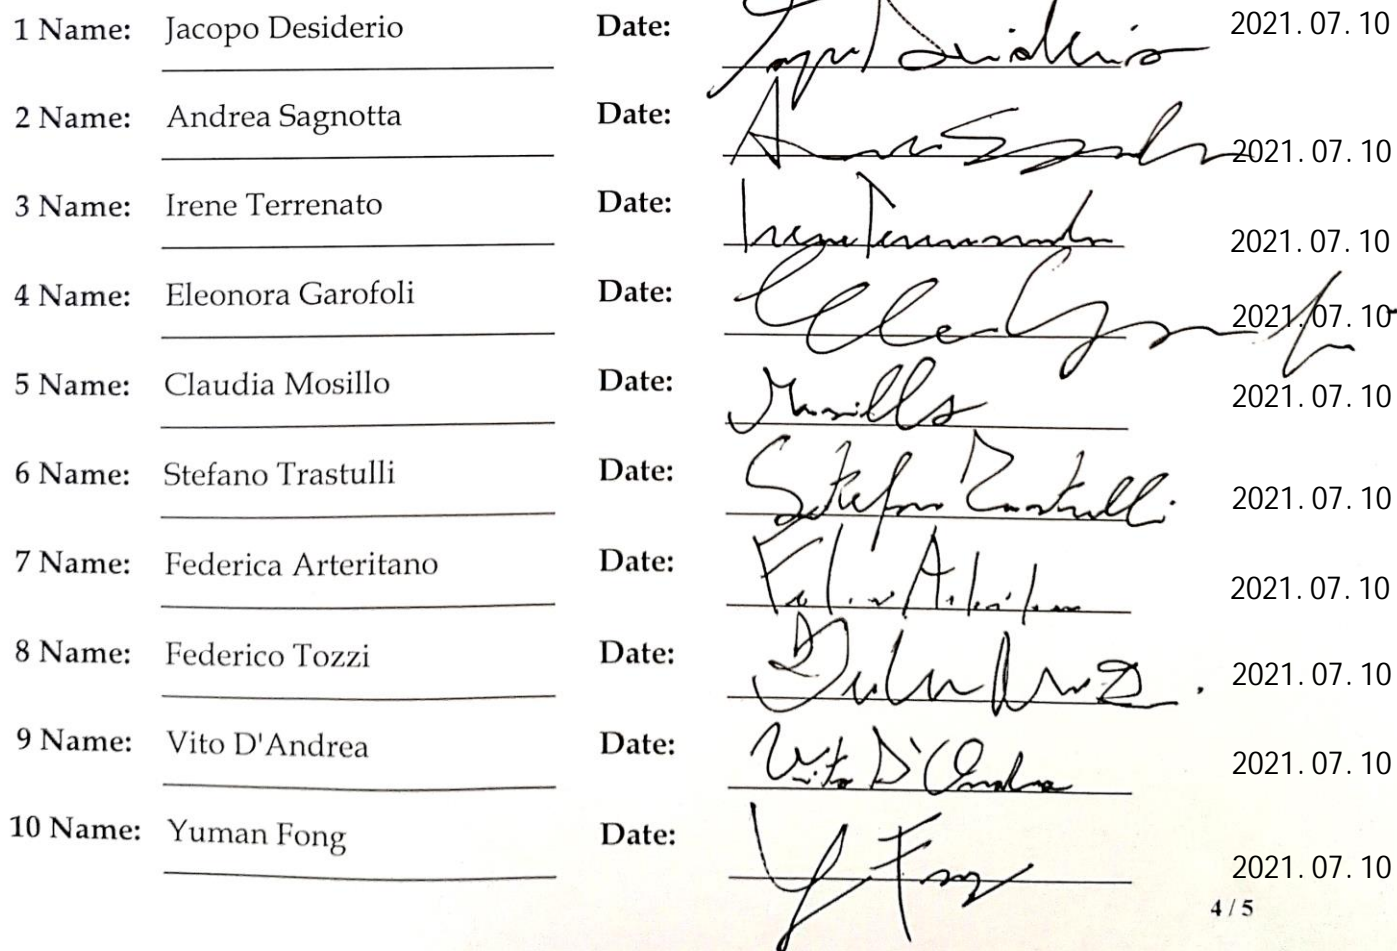 1 Name: Jacopo Desiderio Date: 2021.07.10
2 Name: Andrea Sagnotta Date: 2021.07.10
3 Name: Irene Terrenato Date: Irene Terrenato 2021.07.10
4 Name: Eleonora Garofoli Date: 2021.07.10
5 Name: Claudia Mosillo Date: Mosillo 2021.07.10
6 Name: Stefano Trastulli Date: Stefano Trastulli 2021.07.10
7 Name: Federica Arteritano Date: 2021.07.10
8 Name: Federico Tozzi Date: 2021.07.10
9 Name: Vito D'Andrea Date: Vito D'Andrea 2021.07.10
10 Name: Yuman Fong Date: Y Fong 2021.07.10
4 / 5